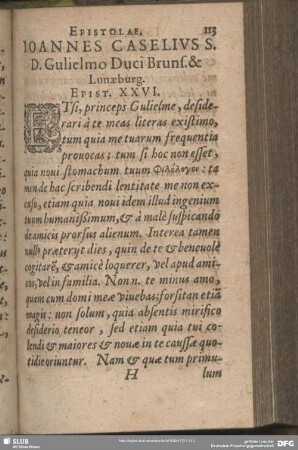 EPISTOLAE. 113
IOANNES CASELIVS S.
D. Gulielmo Duci Brunſ. &
Lunæburg.
EPIST. XXVI.
ETſi, princeps Gulielme, deſide-
rari à te meas literas exiſtimo,
tum quia me tuarum frequentia
prouocas; tum ſi hoc non eſſet,
quia noui ſtomachum tuum Φιλόλογον: ta
men de hac ſcribendi lentitate me non ex-
cuſo, etiam quia noui idem illud ingenium
tuum humaniſſimum, & à malè ſuſpicando
de amicis prorſus alienum. Interea tamen
nullꝰ præteryt dies, quin de te & beneuolè
cogitarē, & amicè loquerer, vel apud ami-
cos, vel in familia. Non n. te minus amo,
quam cum domi meæ viuebas; forſitan etiā
magis: non ſolum, quia abſentis mirifico
deſiderio teneor, ſed etiam quia tui co-
lendi & maiores & nouæ in te cauſſæ quo-
tidie oriuntur. Nam & quæ tum primu-
H lum
SLUB
Wir führen Wissen.
gefördert von der
Deutschen Forschungsgemeinschaft
DFG